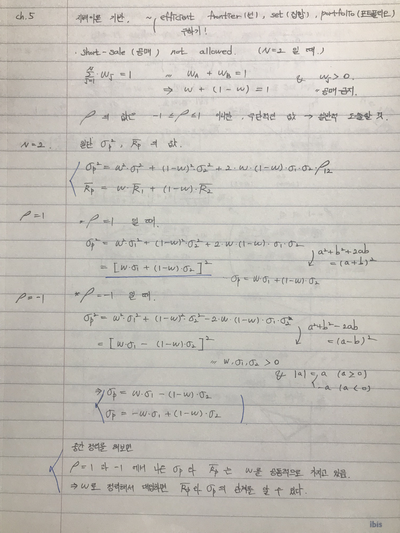 ch.5 지배이론 기반. ~ efficient frontier(선), set(집합), portfolio(포트폴리오)
구하기!
· short-sale (공매) not allowed. (N=2 일 때.)
Σ wj = 1 ~ wA + wB = 1 & wj > 0.
⇒ w + (1-w) = 1 공매 금지.
ρ의 값은 -1 ≤ ρ ≤ 1 이지만, 극단적인 값 →
N=2. 일단 σp², R̄p 의 값.
σp² = w²·σ1² + (1-w)²·σ2² + 2·w·(1-w)·σ1·σ2·ρ12
R̄p = w·R̄1 + (1-w)·R̄2
ρ=1 * ρ=1 일 때.
σp² = w²·σ1² + (1-w)²·σ2² + 2·w·(1-w)·σ1·σ2
a²+b²+2ab
= [w·σ1 + (1-w)·σ2]² =(a+b)²
σp = w·σ1 + (1-w)·σ2
ρ=-1 * ρ=-1 일 때.
σp² = w²·σ1² + (1-w)²·σ2² - 2·w·(1-w)·σ1·σ2
a²+b²-2ab
= [w·σ1 - (1-w)·σ2]² =(a-b)²
~ w.σ1,σ2 > 0
& |a| = a (a≥0)
-a (a<0)
⇒ σp = w·σ1 - (1-w)·σ2
σp = -w·σ1 + (1-w)·σ2
중간 정리를 해보면
ρ=1 과 -1 에서 나온 σp 와 R̄p 는 w를 공통적으로 가지고 있음.
⇒ w로 정리해서 대입하면 R̄p와 σp의 관계를 알 수 있다.
ibis